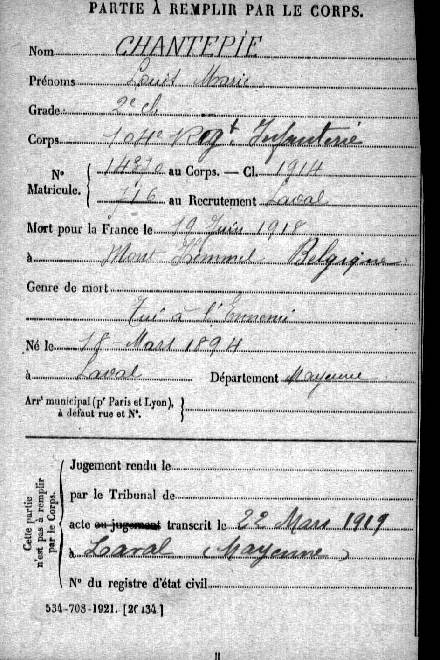 PARTIE À REMPLIR PAR LE CORPS.
Nom CHANTEPIE
Prénoms Louis Marie
Grade 2e cl
Corps 104e Régt Infanterie
N° Matricule. { 14370 au Corps. — Cl. 1914
716 au Recrutement Laval
Mort pour la France le 19 Juin 1918
à Mont Kemmel Belgique
Genre de mort
Tué à l'Ennemi
Né le 18 Mars 1894
à Laval Département Mayenne
Arrt municipal (pr Paris et Lyon), à défaut rue et N°. }
Cette partie n'est pas à remplir par le Corps. { Jugement rendu le
par le Tribunal de
acte ou jugement transcrit le 22 Mars 1919
à Laval (Mayenne)
N° du registre d'état civil
534-708-1921. [26434]